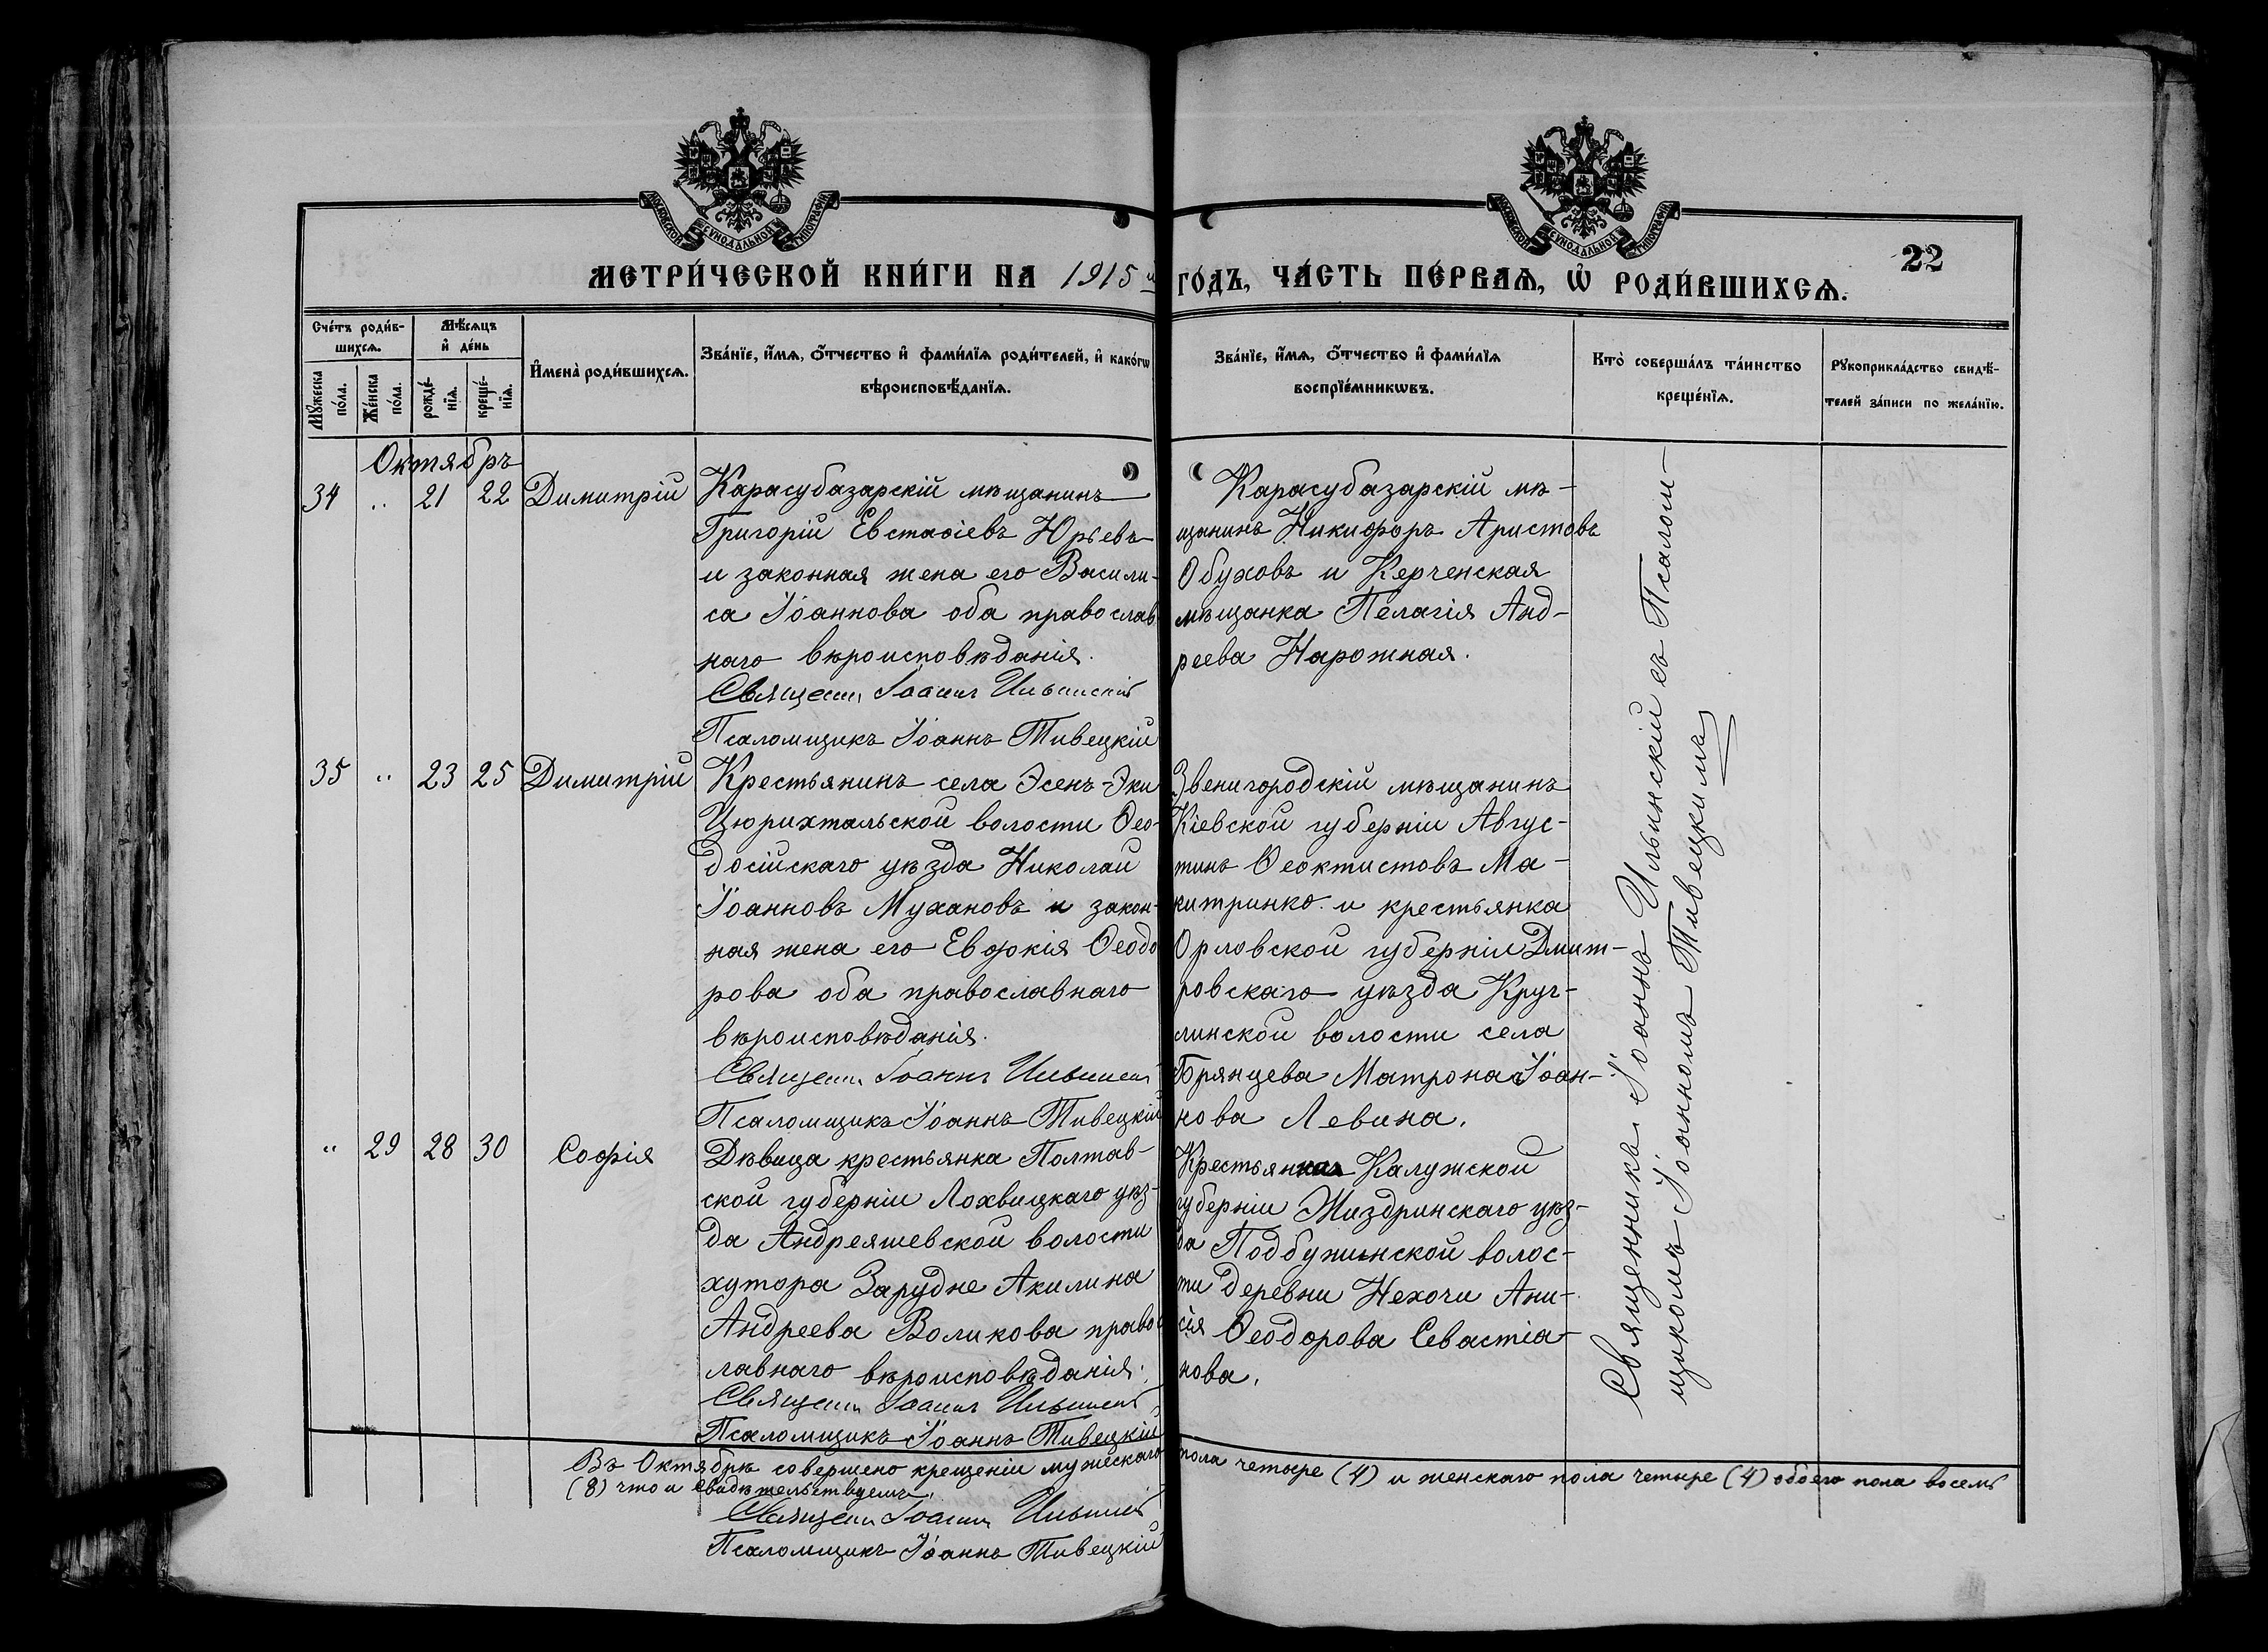 МОСКОВСКОЙ СѴНОДАЛЬНОЙ ТИПОГРАФІИ
МОСКОВСКОЙ СѴНОДАЛЬНОЙ ТИПОГРАФІИ
22
МЕТРИ́ЧЕСКОЙ КНИ́ГИ НА 1915 й ГО́ДЪ, ЧА́СТЬ ПЕ́РВАѦ, Ѡ҆ РОДИ́ВШИХСѦ.
Сче́тъ роди́в-
шихсѧ.
Мꙋ́жеска
по́ла.
Же́нска
по́ла.
Мѣ́сѧцъ
и҆ де́нь
рожде́-
нїѧ.
креще́-
нїѧ.
И҆мена̀ роди́вшихсѧ.
Зва́нїе, и҆́мѧ, ѻ҆́тчество и҆ фами́лїѧ роди́телей, и҆ како́гѡ
вѣроисповѣ́данїѧ.
Зва́нїе, и҆́мѧ, ѻ҆́тчество и҆ фами́лїѧ
воспрїе́мникѡвъ.
Кто̀ соверша́лъ та́инство
креще́нїѧ.
Рꙋкоприкла́дство свидѣ́-
телей за́писи по жела́нїю.
Октябрь
34 " 21 22 Димитрій
Карасубазарскій мѣщанинъ
Григорій Евстаѳіевъ Юрьевъ
и законная жена его Васили-
са Іоаннова оба православ
наго вѣроисповѣданія.
Священ. Іоаннъ Ильинскій
Псаломщикъ Іоаннъ Тивецкій
Карасубазарскій мѣ-
щанинъ Никифоръ Аристовъ
Обуховъ и Керченская
мѣщанка Пелагія Анд-
реева Нарожная.
35 " 23 25 Димитрій
Крестьянинъ села Эсенъ-Эки
Цюрихтальской волости Ѳео-
досійскаго уѣзда Николай
Іоанновъ Мухановъ и закон-
ная жена его Евдокія Ѳеодо
рова оба православнаго
вѣроисповѣданія.
Священ. Іоаннъ Ильинскій
Псаломщикъ Іоаннъ Тивецкій
Звенигородскій мѣщанинъ
Кіевской губерніи Авгус-
тинъ Ѳеоктистовъ Ма-
китринко и крестьянка
Орловской губерніи Дмит-
ровскаго уѣзда Круг-
линской волости села
Брянцева Матрона Іоан-
нова Левина.
" 29 28 30 Софія
Дѣвица крестьянка Полтав-
ской губерніи Лохвицкаго уѣз-
да Андреяшевской волости
хутора Зарудне Акилина
Андреева Воликова правос
лавнаго вѣроисповѣданія.
Священ. Іоаннъ Ильинскій
Псаломщикъ Іоаннъ Тивецкій
Крестьянка Калужской
губерніи Жиздринскаго уѣз-
да Подбужинской волос-
ти деревни Нехочи Ани-
сія Ѳеодорова Севастіа-
нова.
Священникъ Іоаннъ Ильинскій съ Псалом-
щикомъ Іоанномъ Тивецкимъ
Въ Октябрѣ совершено крещеніи мужескаго пола четыре (4) и женскаго пола четыре (4) обоего пола восемь
(8) что и свидѣтельствуемъ.
Священ. Іоаннъ Ильинскій
Псаломщикъ Іоаннъ Тивецкій